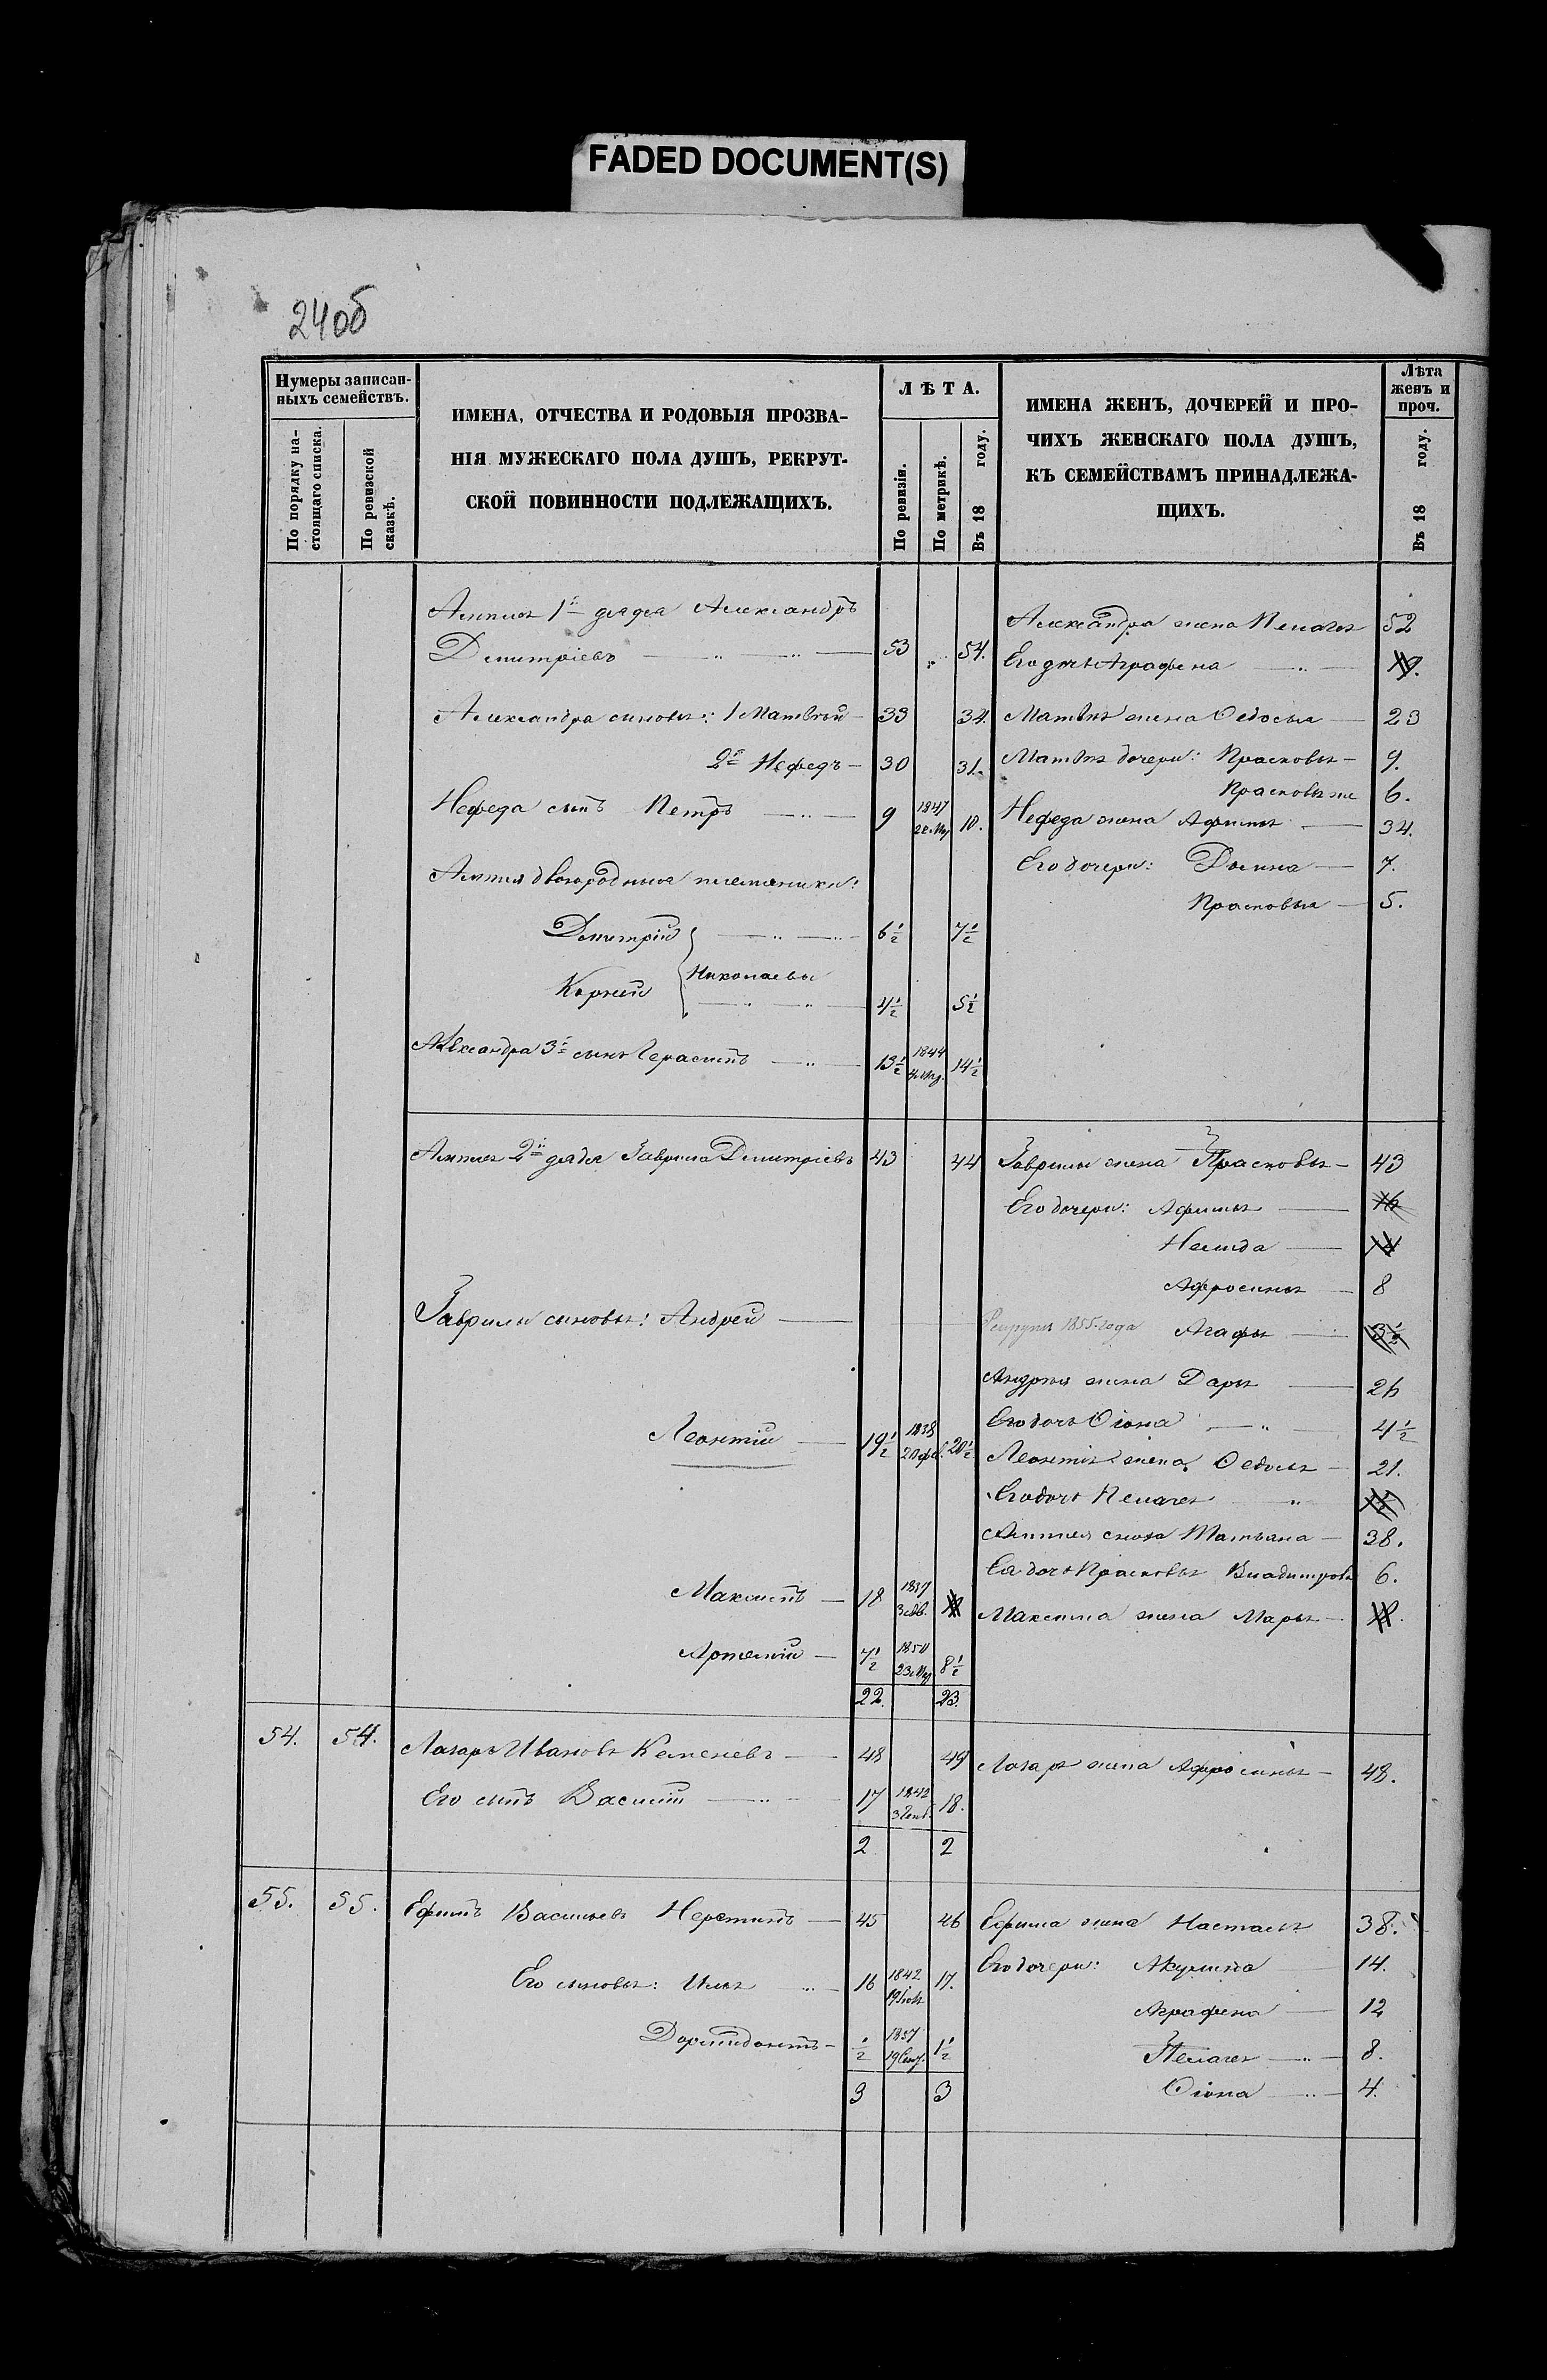 FADED DOCUMENT(S)
240б
Нумеры записан-
ныхъ семействъ.
По порядку на-
стоящаго списка.
По ревизской
сказкѣ.
ИМЕНА, ОТЧЕСТВА И РОДОВЫЯ ПРОЗВА-
НІЯ МУЖЕСКАГО ПОЛА ДУШЪ, РЕКРУТ-
СКОЙ ПОВИННОСТИ ПОДЛЕЖАЩИХЪ.
ЛѢТА.
По ревизіи.
По метрикѣ.
Въ 18 году.
ИМЕНА ЖЕНЪ, ДОЧЕРЕЙ И ПРО-
ЧИХЪ ЖЕНСКАГО ПОЛА ДУШЪ,
КЪ СЕМЕЙСТВАМЪ ПРИНАДЛЕЖА-
ЩИХЪ.
Лѣта
женъ и
проч.
Въ 18 году.
1й дядя Александръ
Дмитріевъ 53 54.
Александра жена Пелагея 52
Его дочь Аграфена
Александра сыновья: 1 Матвѣй 33 34.
Матвѣя жена Ѳедосья 23
2й Нефедъ 30 31.
Матвѣя дочери: Прасковья 9.
Прасковья же 6.
Нефеда сынъ Петръ 9 1847 10.
Нефеда жена Афимья 34.
двоюродныя племянники:
Его дочери: Домна 7.
Прасковья 5.
Дмитрій 6½ 7½
Николаевы
Корней 4½ 5½
Александра 3й сынъ Герасимъ 13½ 1844 14½
2й дядя Гаврила Дмитріевъ 43 44
Гаврилы жена Прасковья 43
Его дочери: Афимья 16
Афросинья 8
Гаврилы сыновья: Андрей
1855 года Агафья 3½
Андрея жена Дарья 26
Его дочь 4½
Леонтій 19½ 1838 20 фев. 20½
Леонтія жена Ѳедосья 21.
Его дочь Пелагея
сноха Татьяна 38.
Ея дочь Прасковья Владимирова 6.
Максимъ 18
Максима жена Марья
Артемій 7½ 1850 8½
22. 23.
54. 54. Лазарь Ивановъ 48 49
Лазаря жена Афросинья 48.
Его сынъ Василій 17 1842 18.
2 2
55. 55. Ефимъ Васильевъ 45 46
Ефима жена Настасья 38.
Его сыновья: Илья 16 1842 17.
Его дочери: Акулина 14.
Аграфена 12
Дормидонтъ ½ 1857 1½
Пелагея 8.
4.
3 3